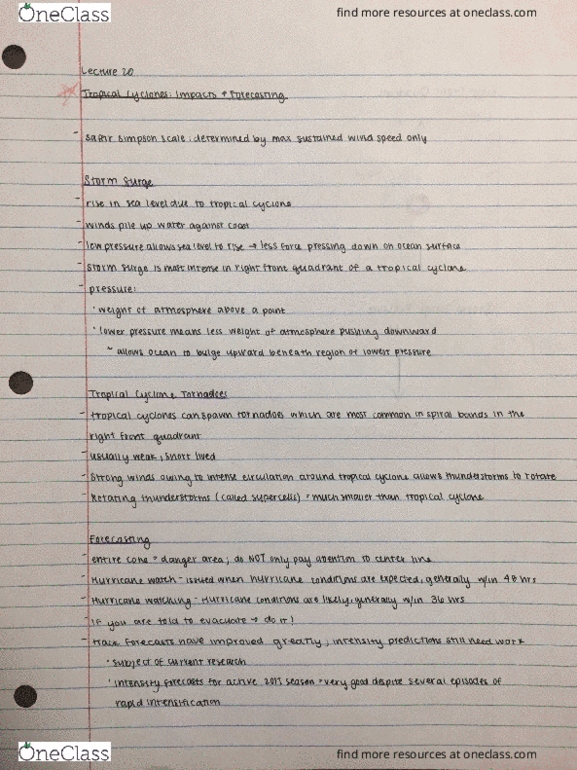 OneClass
find more resources at oneclass.com
Lecture 20
Tropical Cyclones: Impacts + Forecasting
- Saffir Simpson scale: determined by max sustained wind speed only
Storm Surge
- rise in sea level due to tropical cyclone
- winds pile up water against coast
- low pressure allows sea level to rise → less force pressing down on ocean surface
- storm surge is most intense in right front quadrant of a tropical cyclone
- pressure:
· weight of atmosphere above a point
· lower pressure means less weight of atmosphere pushing downward
~ allows ocean to bulge upward beneath region of lowest pressure
Tropical Cyclone Tornadoes
- tropical cyclones can spawn tornadoes which are most common in spiral bands in the
right front quadrant
- usually weak, short lived
- Strong winds owing to intense circulation around tropical cyclone allows thunderstorms to rotate
- Rotating thunderstorms (called supercells) = much smaller than tropical cyclone
Forecasting
- entire cone = danger area; do NOT only pay attention to center line
- Hurricane watch - issued when hurricane conditions are expected, generally w/in 48 hrs
- Hurricane watching - Hurricane conditions are likely, generally w/in 36 hrs
- if you are told to evacuate → do it!
- track forecasts have improved greatly; intensity predictions still need work
· subject of current research
· intensity forecasts for active season = very good despite several episodes of
rapid intensification
OneClass
find more resources at oneclass.com